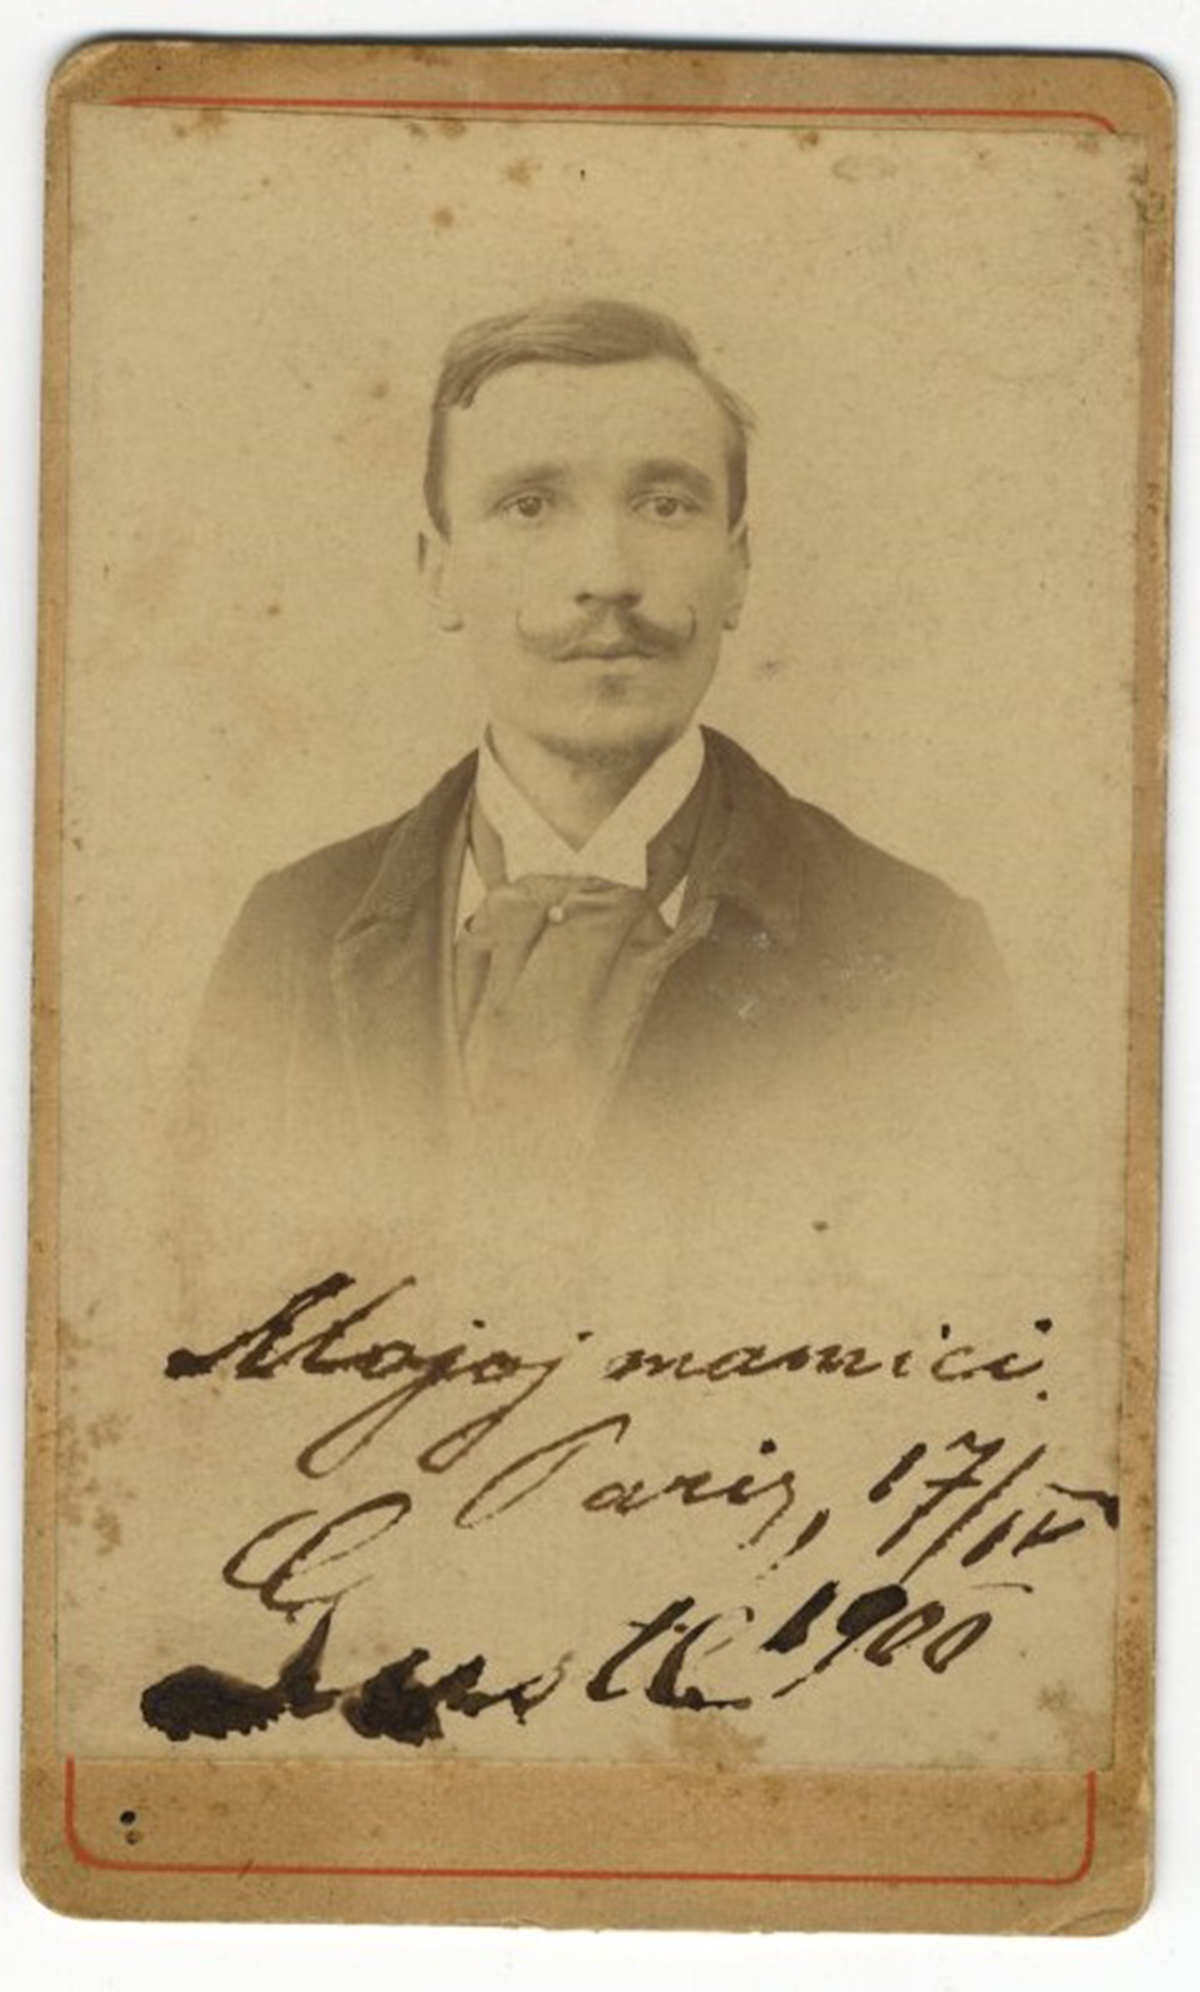 Mojoj mamici.
Pariz, 17/IV
1900
Gustl